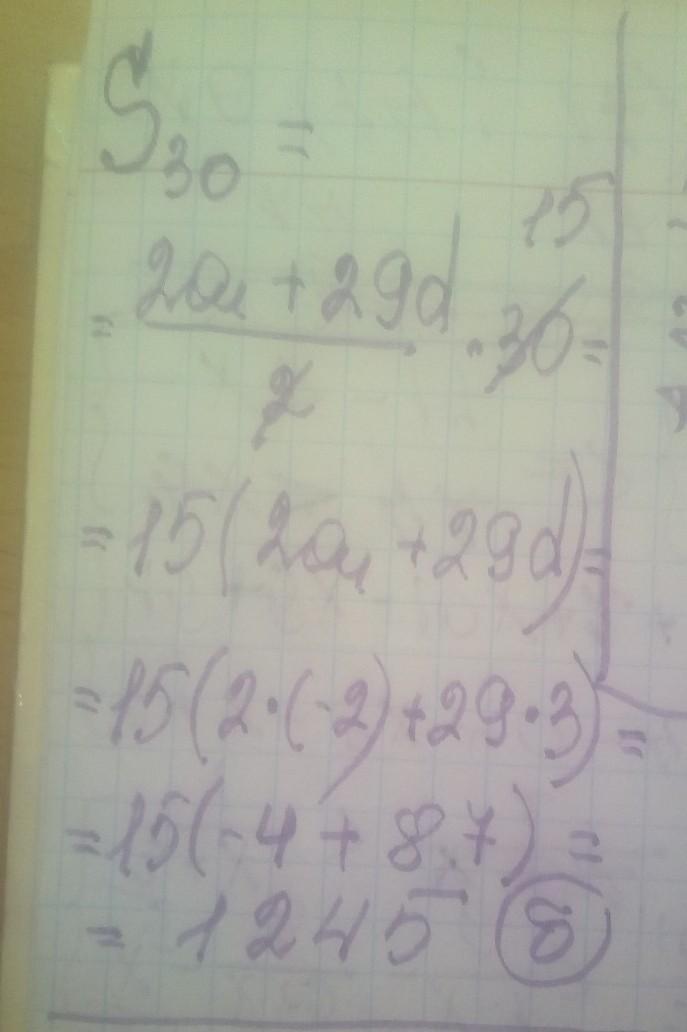 S₃₀ =
= (2a₁ + 29d)/2 · 30 = 15
= 15(2a₁ + 29d) =
= 15(2·(-2) + 29·3) =
= 15(-4 + 87) =
= 1245 б